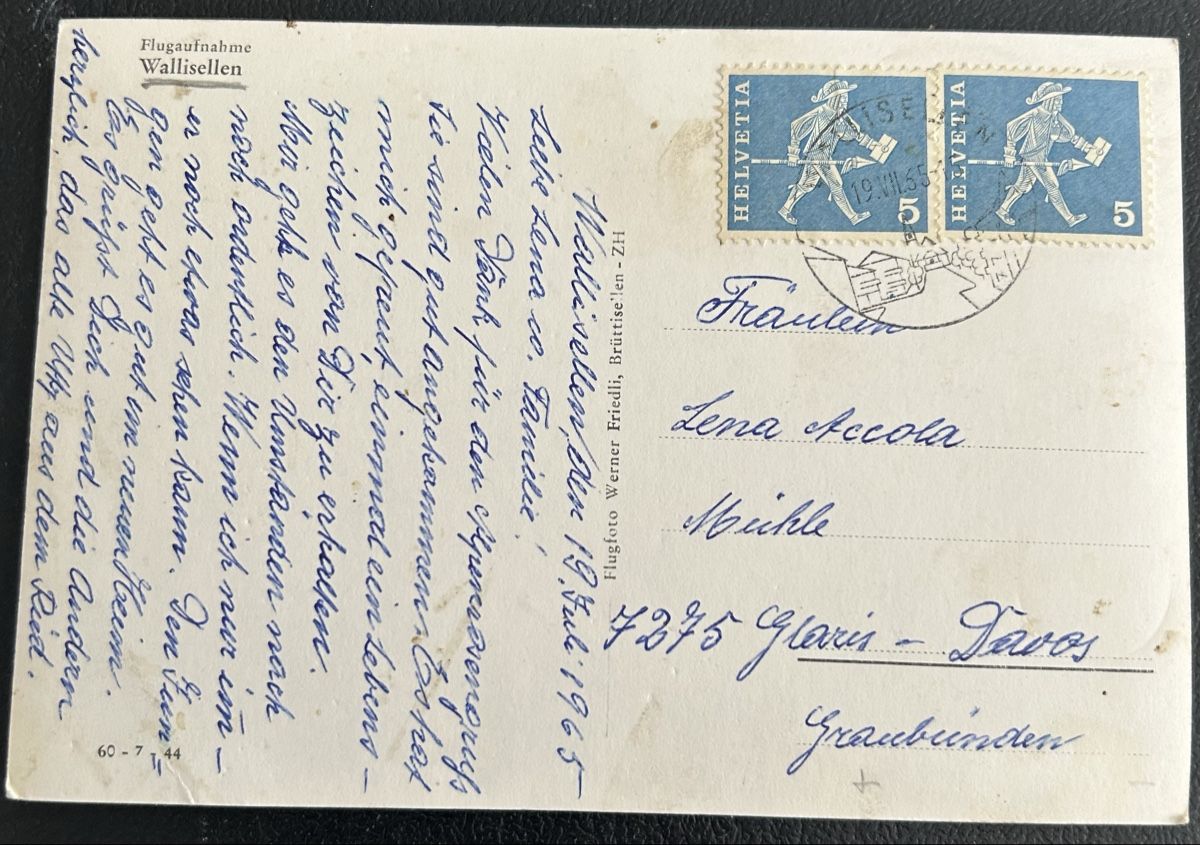 Flugaufnahme
Wallisellen
Wallisellen, den 19. Juli 1965
Liebe Lena u. Familie!
Vielen Dank für den Blumengruss
Sie sind gut angekommen. Es hat
mich gefreut, einmal ein Lebens-
zeichen von Dir zu erhalten.
Mir geht es den Umständen nach
noch ordentlich. Wenn ich nur im-
er noch etwas sehen kann. Den Jun-
gen geht es gut im neuen Heim.
Es grüsst Dich und die Andern
herzlich, das alte aus dem Ried.
Flugfoto Werner Friedli, Brüttisellen - ZH
60 - 7 - 44
HELVETIA
5
HELVETIA
5
WALLISELLEN
19.VII.65
Fräulein
Lena Accola
Mühle
7275 Glaris - Davos
Graubünden